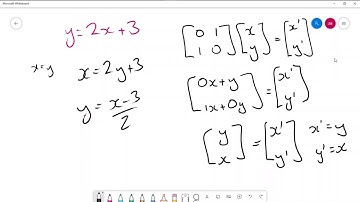 Microsoft Whiteboard
y=2x+3
x=y
x=2y+3
y=x-3/2
[0 1
1 0][x
y]=[x'
y']
[0x+y
1x+0y]=[x'
y']
[y
x]=[x'
y']
x'=y
y'=x